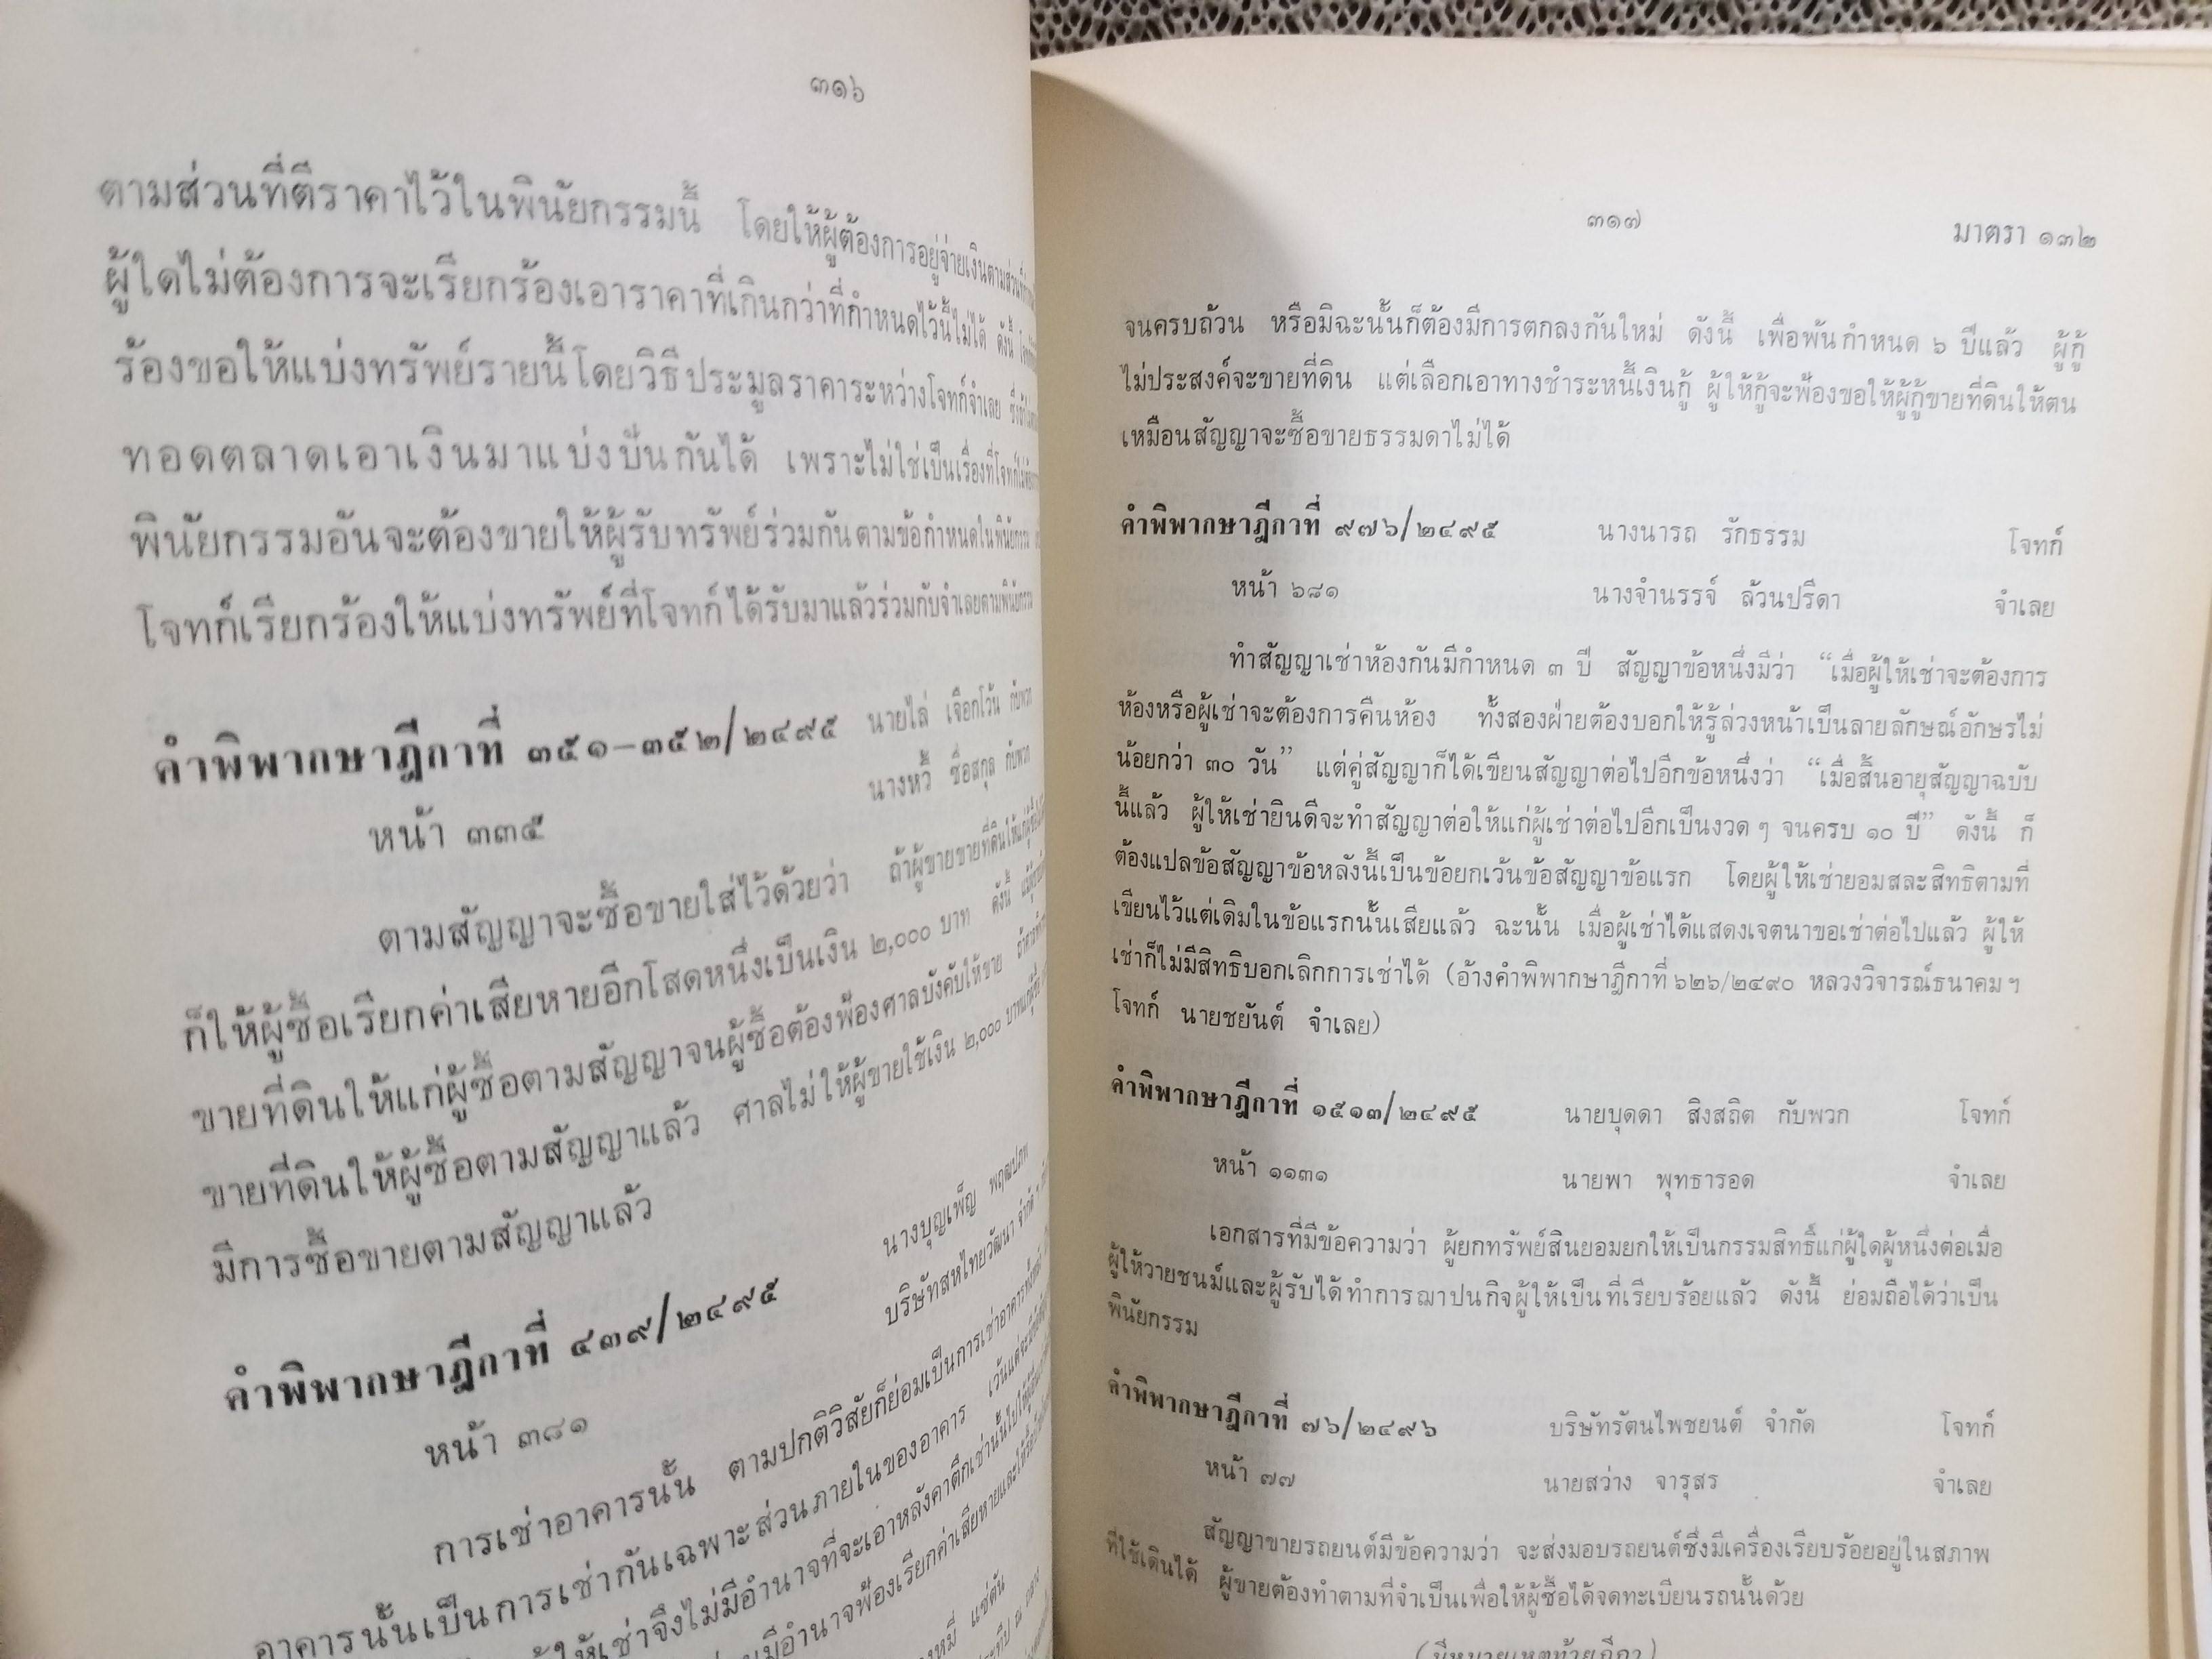 ๓๑๖
ตามส่วนที่ตีราคาไว้ในพินัยกรรมนี้ โดยให้ผู้ต้องการอยู่จ่ายเงินตามส่วนที่
ผู้ใดไม่ต้องการจะเรียกร้องเอาราคาที่เกินกว่าที่กำหนดไว้นี้ไม่ได้ ดังนี้
ร้องขอให้แบ่งทรัพย์รายนี้โดยวิธีประมูลราคาระหว่างโจทก์จำเลย
ทอดตลาดเอาเงินมาแบ่งปันกันได้ เพราะไม่ใช่เป็นเรื่องที่โจทก์
พินัยกรรมอันจะต้องขายให้ผู้รับทรัพย์ร่วมกันตามข้อกำหนดในพินัยกรรม
โจทก์เรียกร้องให้แบ่งทรัพย์ที่โจทก์ได้รับมาแล้วร่วมกับจำเลยตามพินัยกรรม
คำพิพากษาฎีกาที่ ๓๕๑-๓๕๒/๒๔๙๕ นายไล่ เจือกโว้น กับพวก
หน้า ๓๓๕ นางหวี้ ซื่อสกุล กับพวก
ตามสัญญาจะซื้อขายใส่ไว้ด้วยว่า ถ้าผู้ขายขายที่ดินให้แก่ผู้อื่น
ก็ให้ผู้ซื้อเรียกค่าเสียหายอีกโสดหนึ่งเป็นเงิน ๒,๐๐๐ บาท ดังนี้
ขายที่ดินให้แก่ผู้ซื้อตามสัญญาจนผู้ซื้อต้องฟ้องศาลบังคับให้ขาย
ขายที่ดินให้ผู้ซื้อตามสัญญาแล้ว ศาลไม่ให้ผู้ขายใช้เงิน ๒,๐๐๐ บาทแก่ผู้ซื้อ
มีการซื้อขายตามสัญญาแล้ว
คำพิพากษาฎีกาที่ ๔๓๙/๒๔๙๕ นางบุญเพ็ญ พฤฒปภพ
หน้า ๓๘๑ บริษัทสหไทยวัฒนา จำกัด
การเช่าอาคารนั้น ตามปกติวิสัยก็ย่อมเป็นการเช่าอาคารทั้งหลัง
อาคารนั้นเป็นการเช่ากันเฉพาะส่วนภายในของอาคาร เว้นแต่จะมี
ให้เช่าจึงไม่มีอำนาจที่จะเอาหลังคาตึกเช่านั้นไปให้ผู้อื่น
มีอำนาจฟ้องเรียกค่าเสียหายและให้
๓๑๗ มาตรา ๑๓๒
จนครบถ้วน หรือมิฉะนั้นก็ต้องมีการตกลงกันใหม่ ดังนี้ เพื่อพ้นกำหนด ๖ ปีแล้ว ผู้กู้
ไม่ประสงค์จะขายที่ดิน แต่เลือกเอาทางชำระหนี้เงินกู้ ผู้ให้กู้จะฟ้องขอให้ผู้กู้ขายที่ดินให้ตน
เหมือนสัญญาจะซื้อขายธรรมดาไม่ได้
คำพิพากษาฎีกาที่ ๙๗๖/๒๔๙๕ นางนารถ รักธรรม โจทก์
หน้า ๖๘๑ นางจำนรรจ์ ล้วนปรีดา จำเลย
ทำสัญญาเช่าห้องกันมีกำหนด ๓ ปี สัญญาข้อหนึ่งมีว่า “เมื่อผู้ให้เช่าจะต้องการ
ห้องหรือผู้เช่าจะต้องการคืนห้อง ทั้งสองฝ่ายต้องบอกให้รู้ล่วงหน้าเป็นลายลักษณ์อักษรไม่
น้อยกว่า ๓๐ วัน” แต่คู่สัญญาก็ได้เขียนสัญญาต่อไปอีกข้อหนึ่งว่า “เมื่อสิ้นอายุสัญญาฉบับ
นี้แล้ว ผู้ให้เช่ายินดีจะทำสัญญาต่อให้แก่ผู้เช่าต่อไปอีกเป็นงวด ๆ จนครบ ๑๐ ปี” ดังนี้ ก็
ต้องแปลข้อสัญญาข้อหลังนี้เป็นข้อยกเว้นข้อสัญญาข้อแรก โดยผู้ให้เช่ายอมสละสิทธิตามที่
เขียนไว้แต่เดิมในข้อแรกนั้นเสียแล้ว ฉะนั้น เมื่อผู้เช่าได้แสดงเจตนาขอเช่าต่อไปแล้ว ผู้ให้
เช่าก็ไม่มีสิทธิบอกเลิกการเช่าได้ (อ้างคำพิพากษาฎีกาที่ ๖๒๖/๒๔๙๐ หลวงวิจารณ์ธนาคม ฯ
โจทก์ นายชยันต์ จำเลย)
คำพิพากษาฎีกาที่ ๑๕๑๓/๒๔๙๕ นายบุดดา สิงสถิต กับพวก โจทก์
หน้า ๑๑๓๑ นายพา พุทธารอด จำเลย
เอกสารที่มีข้อความว่า ผู้ยกทรัพย์สินยอมยกให้เป็นกรรมสิทธิ์แก่ผู้ใดผู้หนึ่งต่อเมื่อ
ผู้ให้วายชนม์และผู้รับได้ทำการฌาปนกิจผู้ให้เป็นที่เรียบร้อยแล้ว ดังนี้ ย่อมถือได้ว่าเป็น
พินัยกรรม
คำพิพากษาฎีกาที่ ๗๖/๒๔๙๖ บริษัทรัตนไพชยนต์ จำกัด โจทก์
หน้า ๗๗ นายสว่าง จารุสร จำเลย
สัญญาขายรถยนต์มีข้อความว่า จะส่งมอบรถยนต์ซึ่งมีเครื่องเรียบร้อยอยู่ในสภาพ
ที่ใช้เดินได้ ผู้ขายต้องทำตามที่จำเป็นเพื่อให้ผู้ซื้อได้จดทะเบียนรถนั้นด้วย
(มีหมายเหตุท้ายฎีกา)